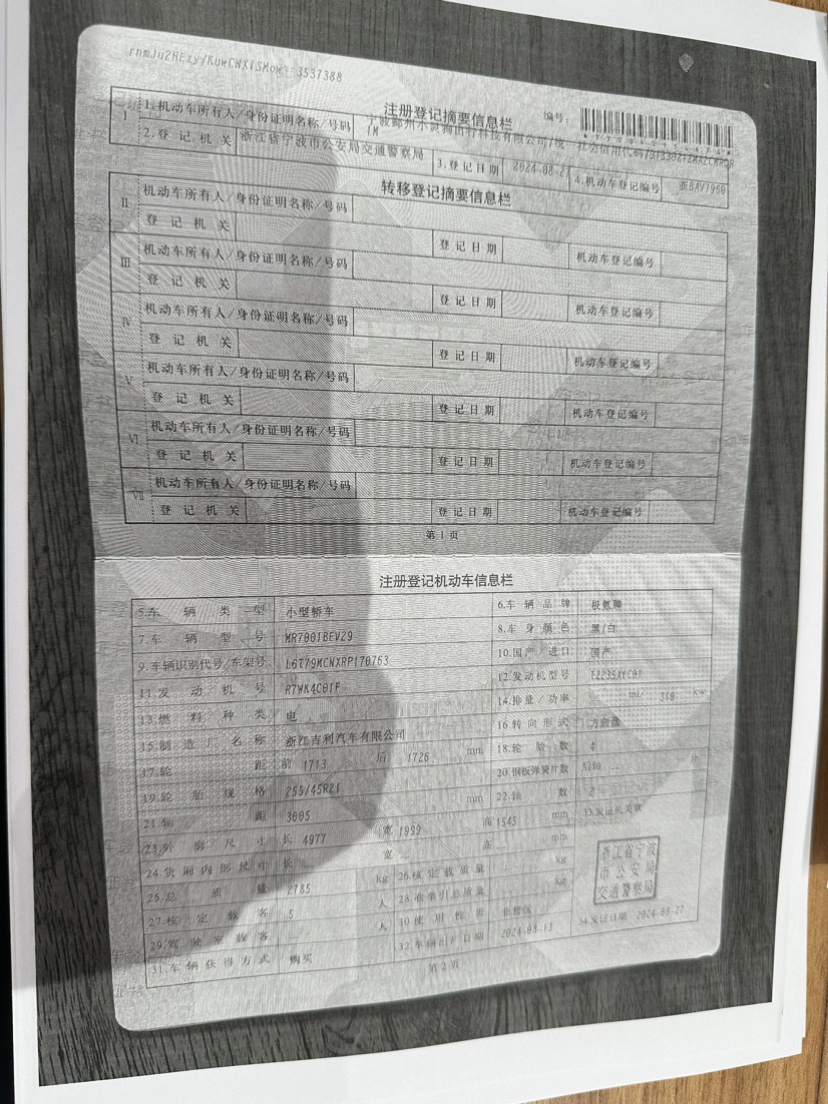 3537388
注册登记摘要信息栏
编号:
I 1.机动车所有人/身份证明名称/号码
2.登记机关 浙江省宁波市公安局交通警察局 3.登记日期 2024-08-27 4.机动车登记编号
转移登记摘要信息栏
II 机动车所有人/身份证明名称/号码
登记机关 登记日期 机动车登记编号
III 机动车所有人/身份证明名称/号码
登记机关 登记日期 机动车登记编号
IV 机动车所有人/身份证明名称/号码
登记机关 登记日期 机动车登记编号
V 机动车所有人/身份证明名称/号码
登记机关 登记日期 机动车登记编号
VI 机动车所有人/身份证明名称/号码
登记机关 登记日期 机动车登记编号
VII 机动车所有人/身份证明名称/号码
登记机关 登记日期 机动车登记编号
第1页
注册登记机动车信息栏
5.车辆类型 小型轿车 6.车辆品牌 极氪牌
7.车辆型号 MR7001BEV29 8.车身颜色 黑/白
9.车辆识别代号/车架号 L6T79MCNXRP170763 10.国产/进口 国产
11.发动机号 R7WK4C01F 12.发动机型号
13.燃料种类 电 14.排量/功率 ml/ 310 kw
15.制造厂名称 浙江吉利汽车有限公司 16.转向形式 方向盘
17.轮距 前 1713 后 1726 mm 18.轮胎数 4
19.轮胎规格 255/45R21 20.钢板弹簧片数 后轴 片
21.轴距 3005 mm 22.轴数 2
23.外廓尺寸 长 4977 宽 1999 高 1545 mm 33.发证机关章
24.货厢内部尺寸 长 宽 高 mm
25.总质量 2785 kg 26.核定载质量 kg
27.核定载客 5 人 28.准牵引总质量 kg
29.驾驶室载客 人 30.使用性质
31.车辆获得方式 购买 32.车辆出厂日期 2024-08-13 34.发证日期 2024-08-27
浙江省宁波
市公安局
交通警察局
第2页